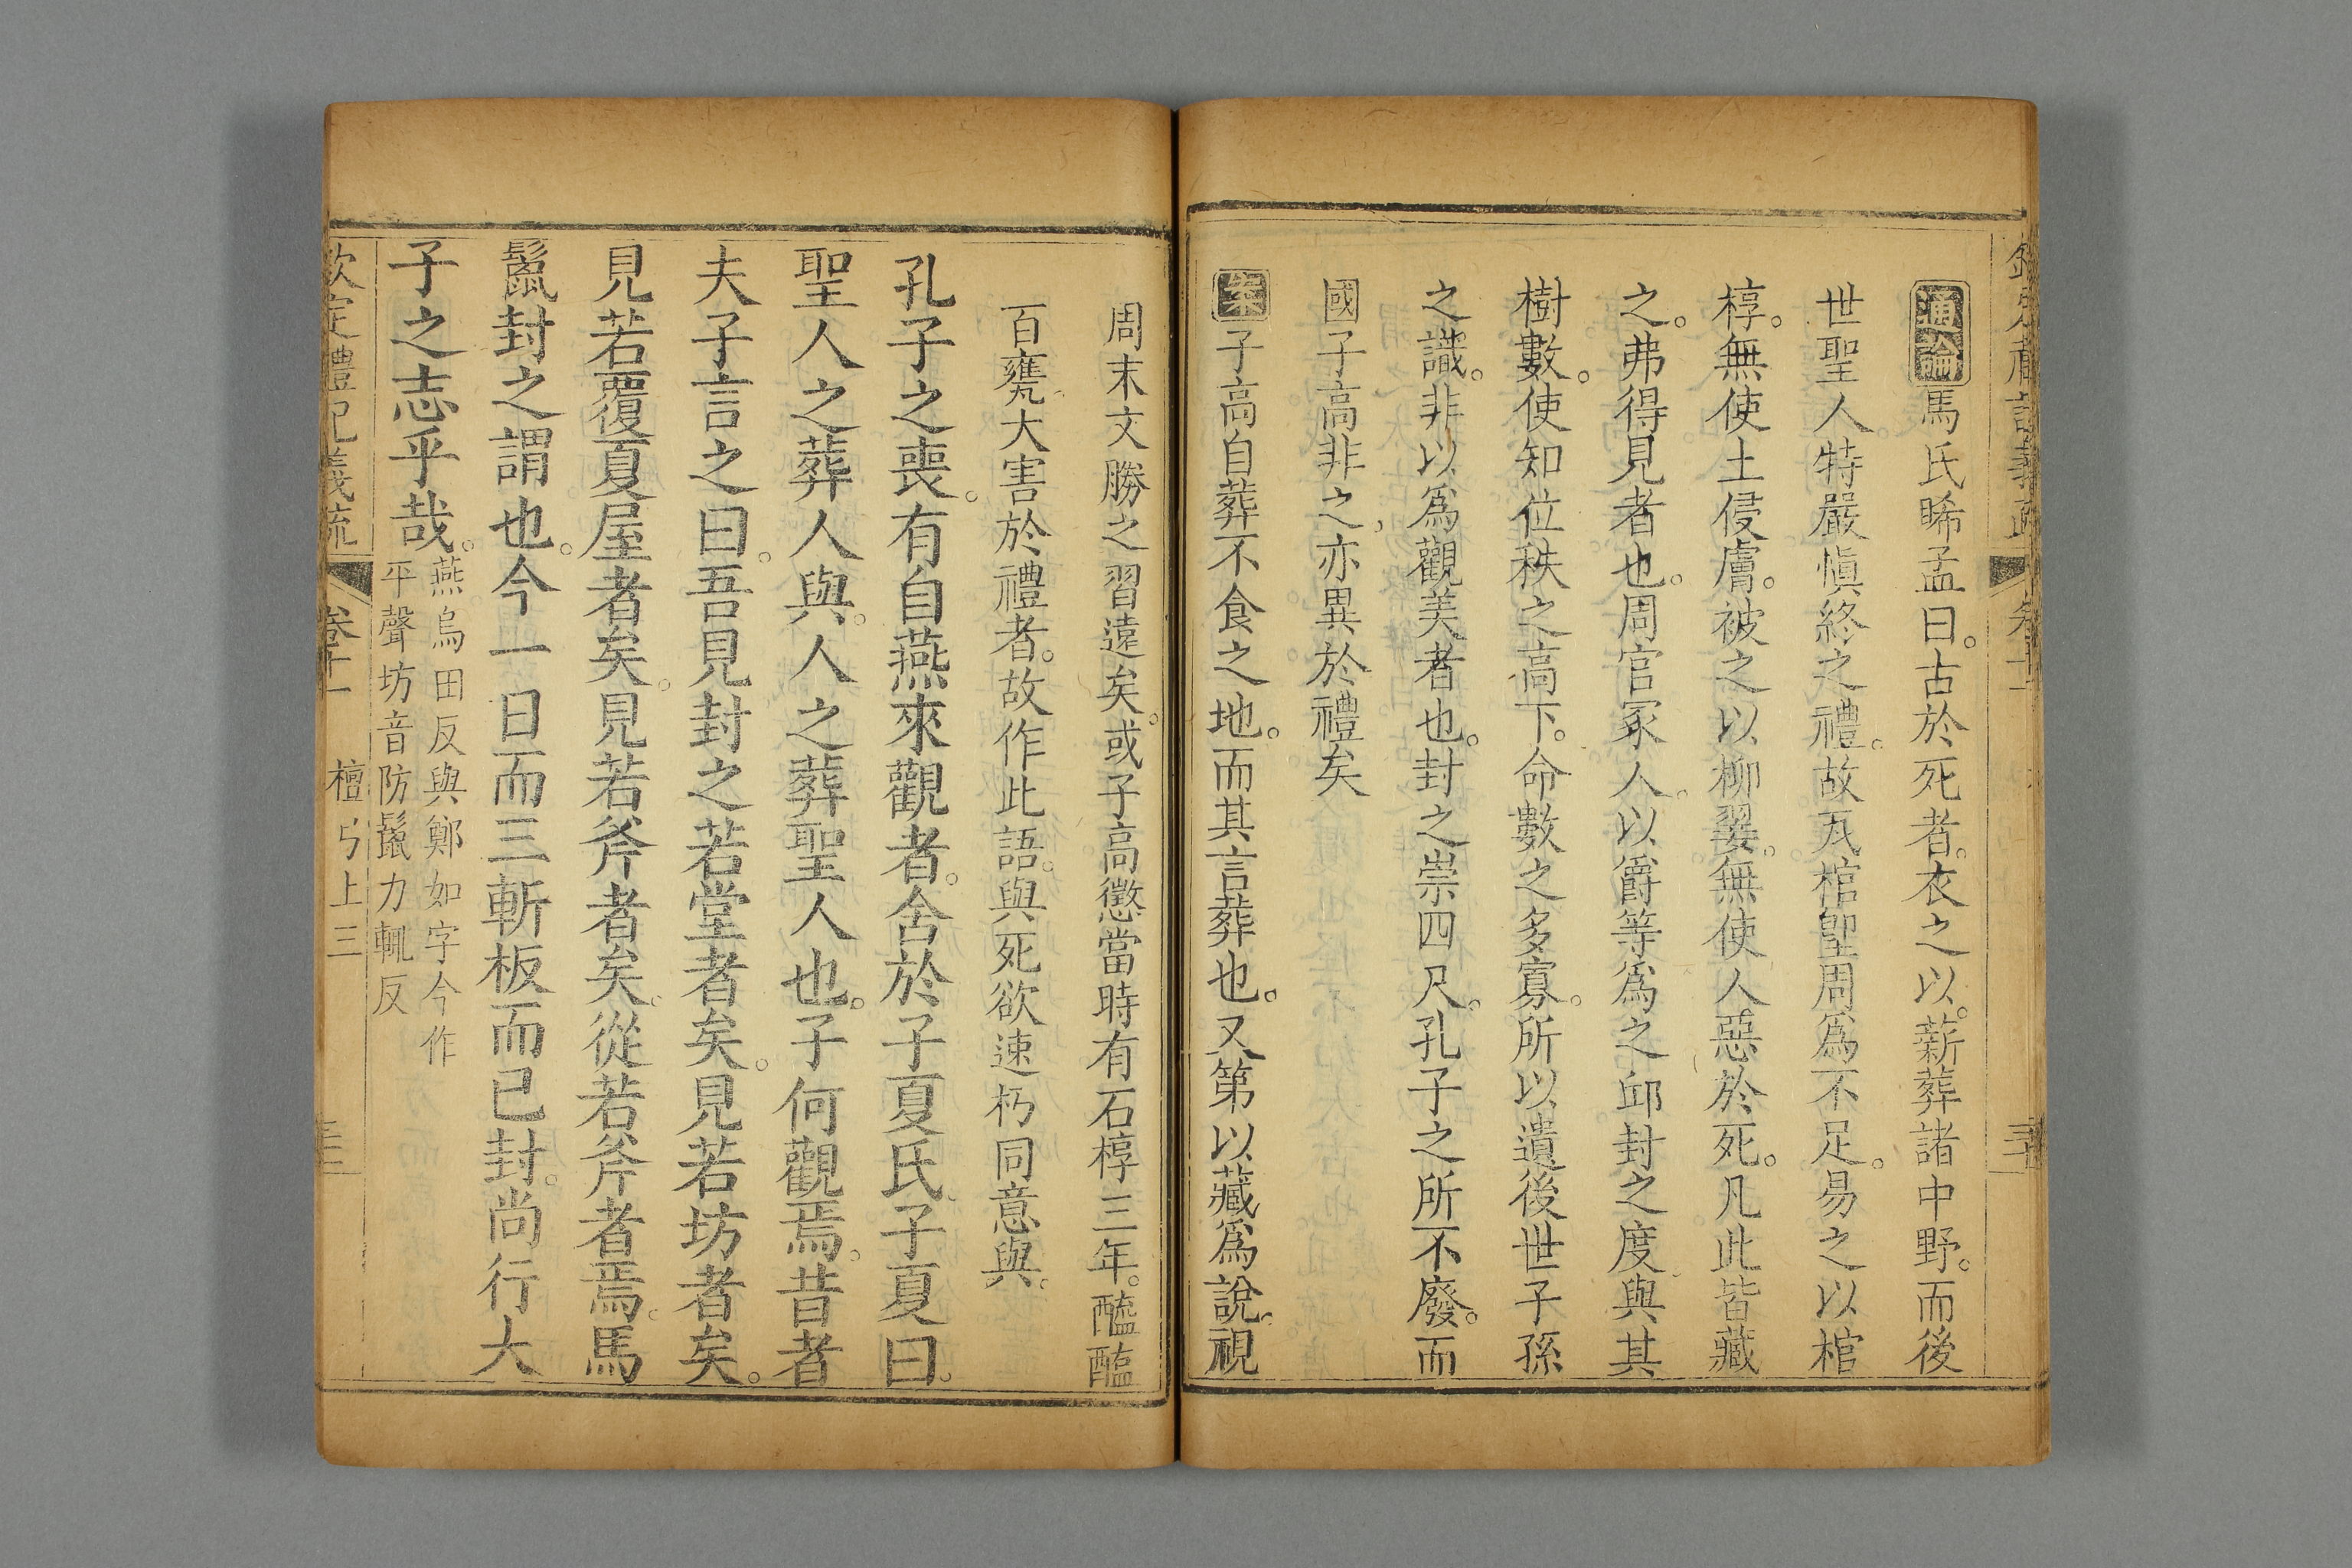 通論馬氏睎孟曰。古於死者。衣之以。薪葬諸中野。而後
世聖人特嚴愼終之禮。故瓦棺堲周爲不足。易之以棺
椁。無使土侵膚。被之以柳翣。無使人惡於死。凡此皆藏
之。弗得見者也。周官冢人。以爵等爲之邱封之度。與其
樹數。使知位秩之高下。命數之多寡。所以遺後世子孫
之識。非以爲觀美者也。封之崇四尺。孔子之所不廢。而
國子高非之。亦異於禮矣
案子高自葬不食之地。而其言葬也。又第以藏爲說。視
周末文勝之習遠矣。或子高懲當時有石椁三年。醯醢
百甕。大害於禮者。故作此語。與死欲速朽同意與。
孔子之喪。有自燕來觀者。舍於子夏氏。子夏曰。
聖人之葬人與。人之葬聖人也。子何觀焉。昔者
夫子言之曰。吾見封之若堂者矣。見若坊者矣。
見若覆夏屋者矣。見若斧者矣。從若斧者焉。馬
鬣封之謂也。今一日而三斬板而已封。尚行大
子之志乎哉。燕烏田反與鄭如字今作
平聲坊音防鬣力輒反
欽定禮記義疏 卷十一 檀弓上三